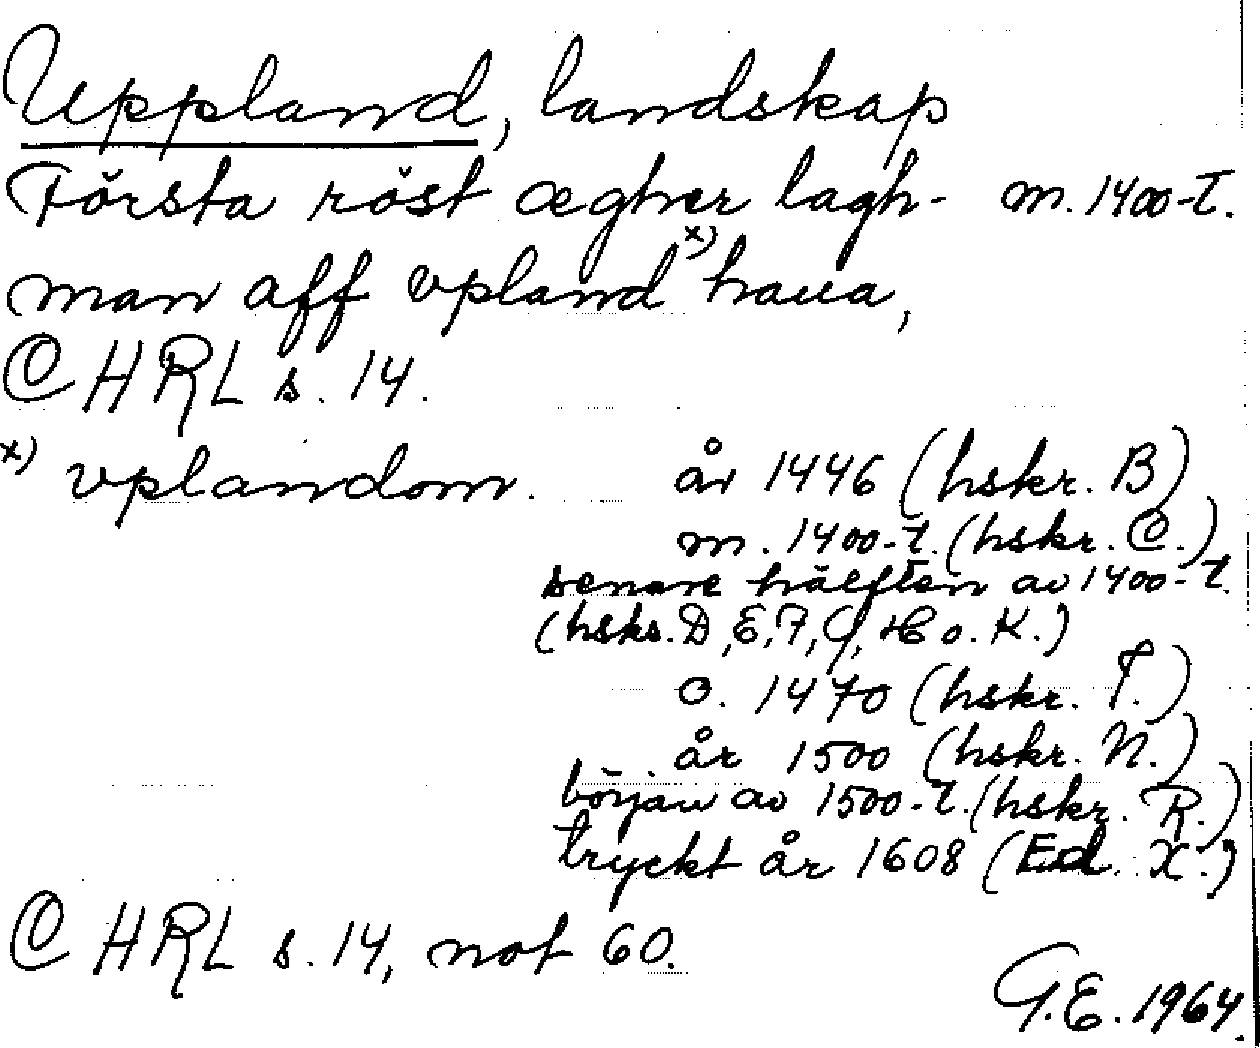 Uppland, landskap
Första röst ægher lagh- m. 1400-t.
man aff vpland x) haua,
CHRL s. 14.
x) vplandom. år 1446 (hskr. B)
m. 1400-t. (hskr. C.)
senare hälften av 1400-t.
(hskr. D, E, F, G, H o. K.)
o. 1470 (hskr. T.)
år 1500 (hskr. N.)
början av 1500-t. (hskr. R.)
tryckt år 1608 (Ed. X.)
CHRL s. 14, not 60.
G.E. 1964.